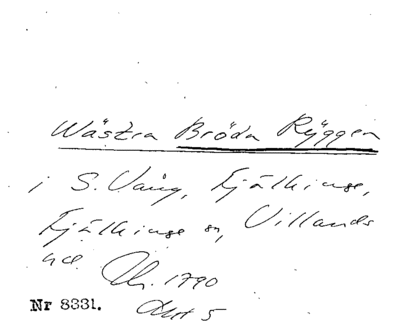 Wästra Bröda Ryggen
i S. Vång, Fjälkinge,
Fjälkinge sn, Villands
hd. Ch. 1790
Akt 5
Nr 8331.